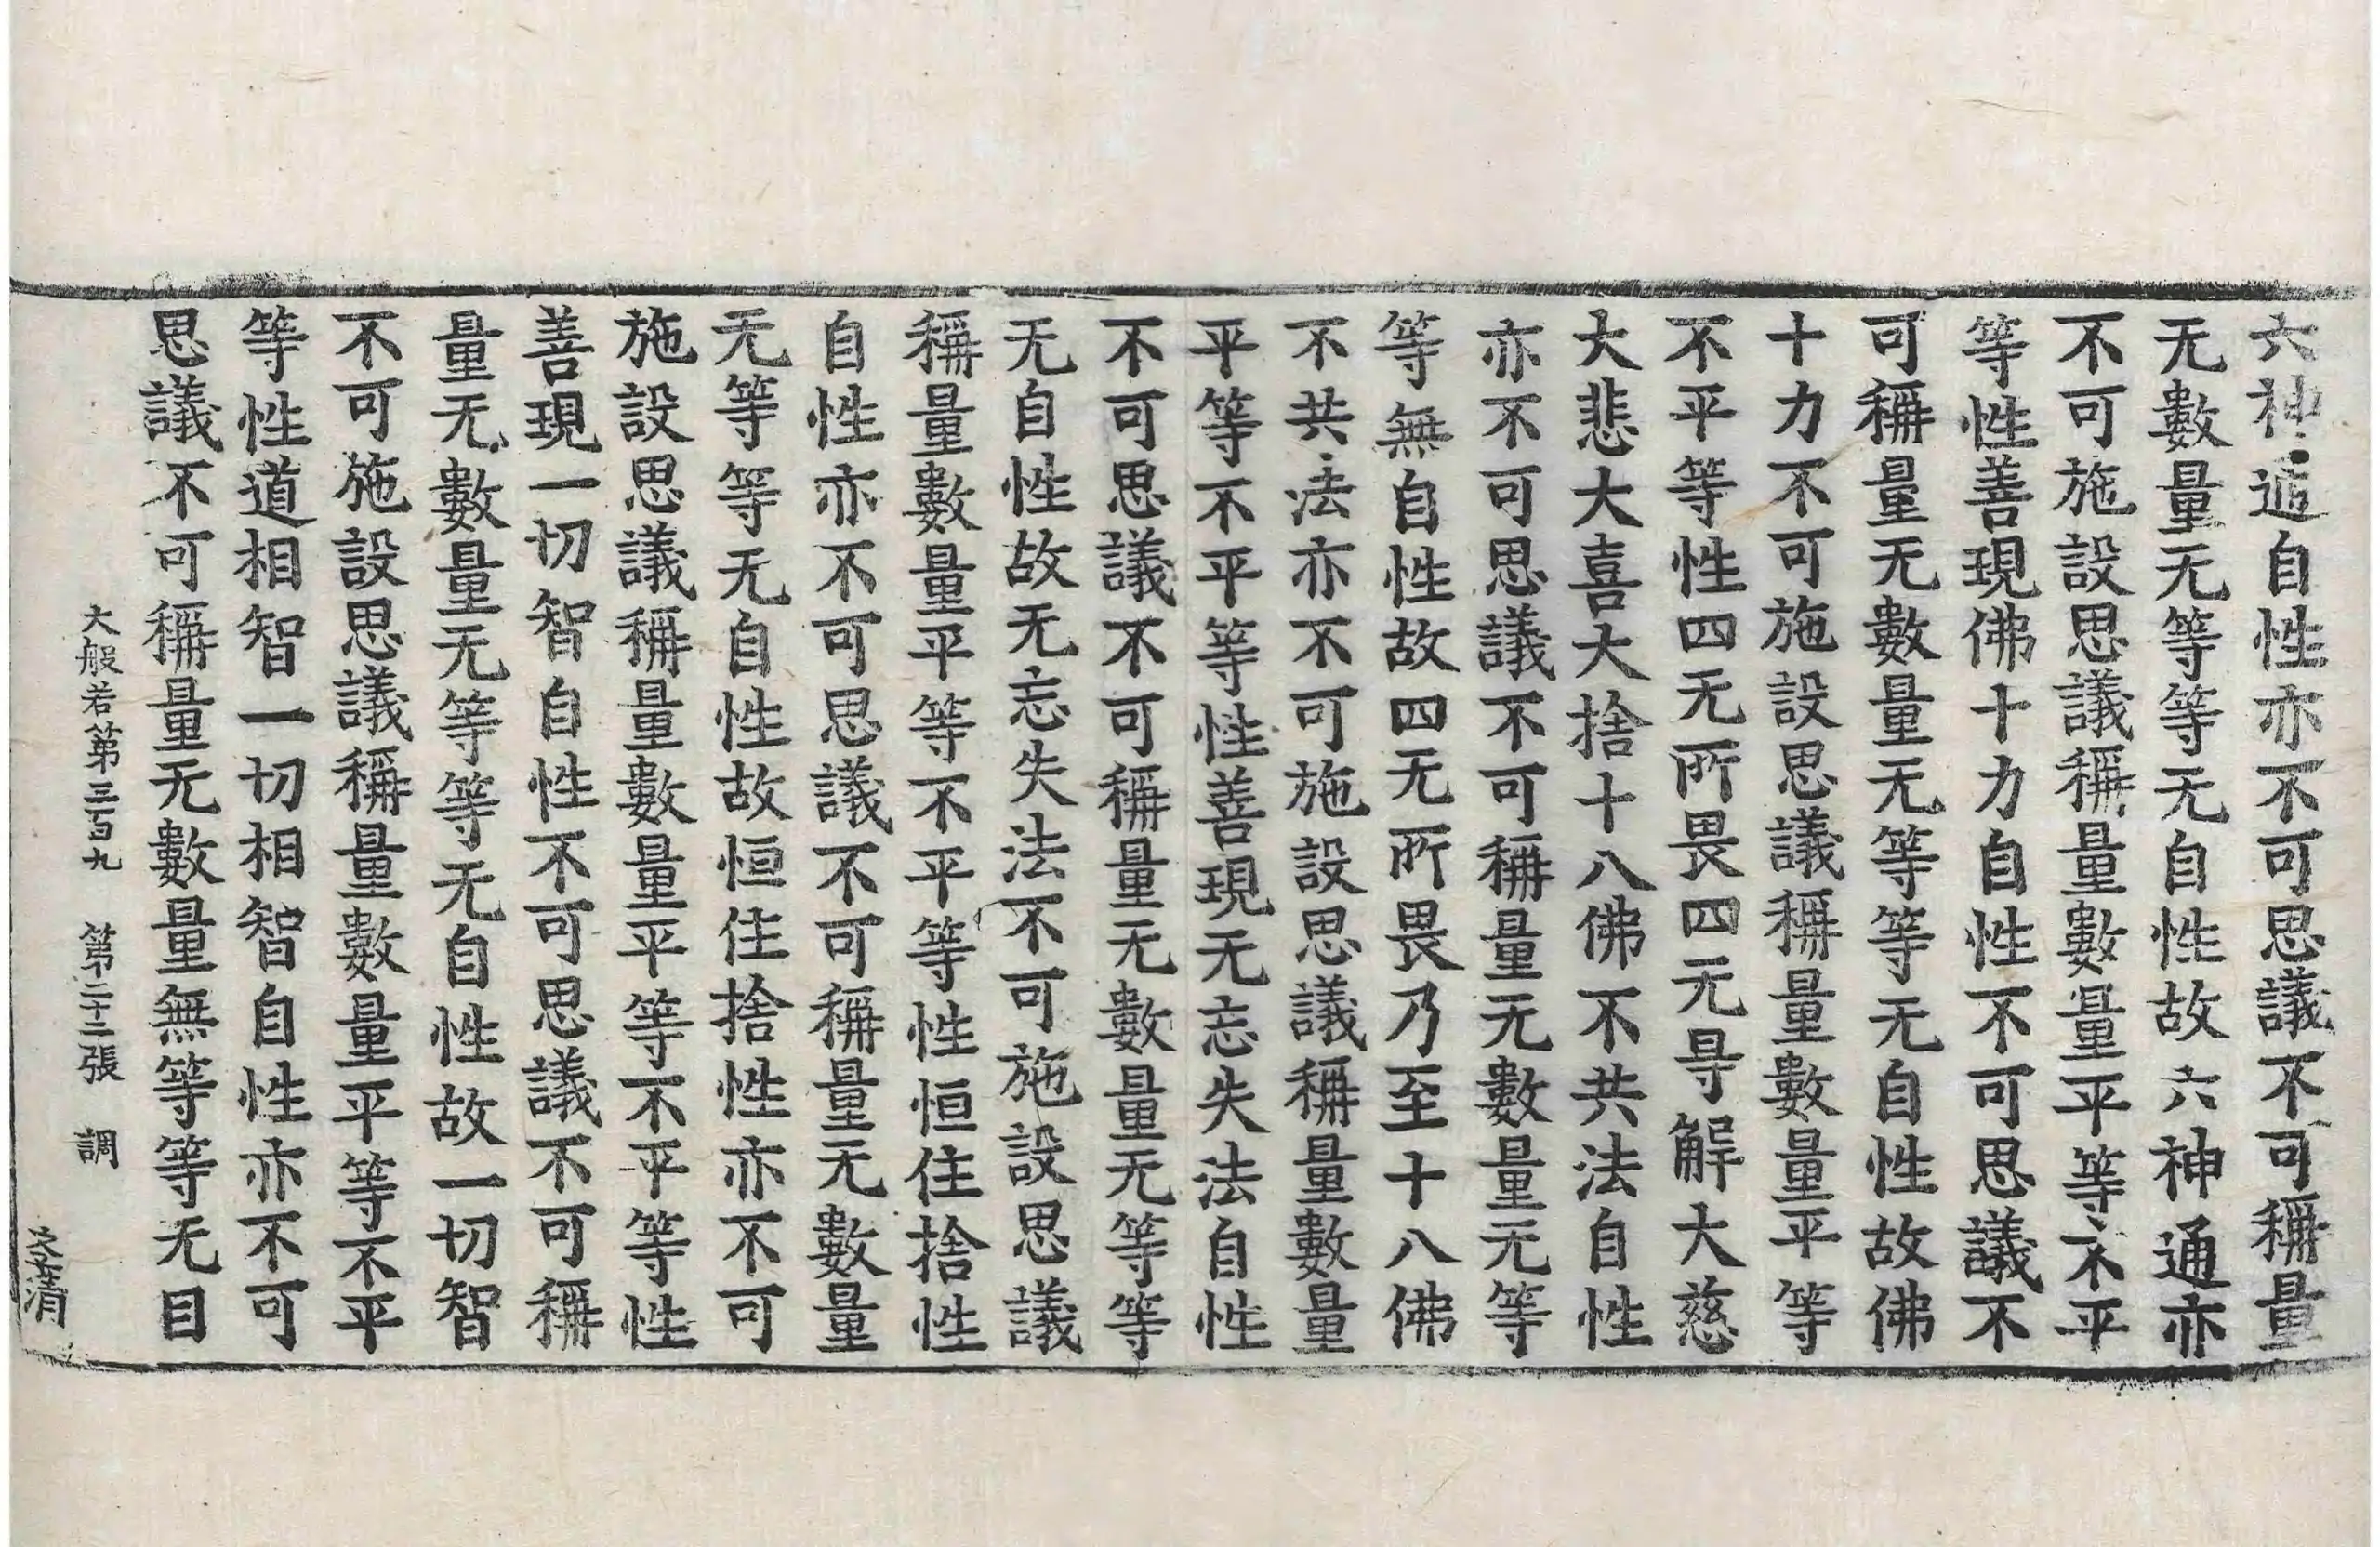 六神通自性亦不可思議不可稱量
无數量无等等无自性故六神通亦
不可施設思議稱量數量平等不平
等性善現佛十力自性不可思議不
可稱量无數量无等等无自性故佛
十力不可施設思議稱量數量平等
不平等性四无所畏四无㝵解大慈
大悲大喜大捨十八佛不共法自性
亦不可思議不可稱量无數量无等
等無自性故四无所畏乃至十八佛
不共法亦不可施設思議稱量數量
平等不平等性善現无忘失法自性
不可思議不可稱量无數量无等等
无自性故无忘失法不可施設思議
稱量數量平等不平等性恒住捨性
自性亦不可思議不可稱量无數量
无等等无自性故恒住捨性亦不可
施設思議稱量數量平等不平等性
善現一切智自性不可思議不可稱
量无數量无等等无自性故一切智
不可施設思議稱量數量平等不平
等性道相智一切相智自性亦不可
思議不可稱量无數量無等等无自
大般若第三百九 第二十二張 調
清